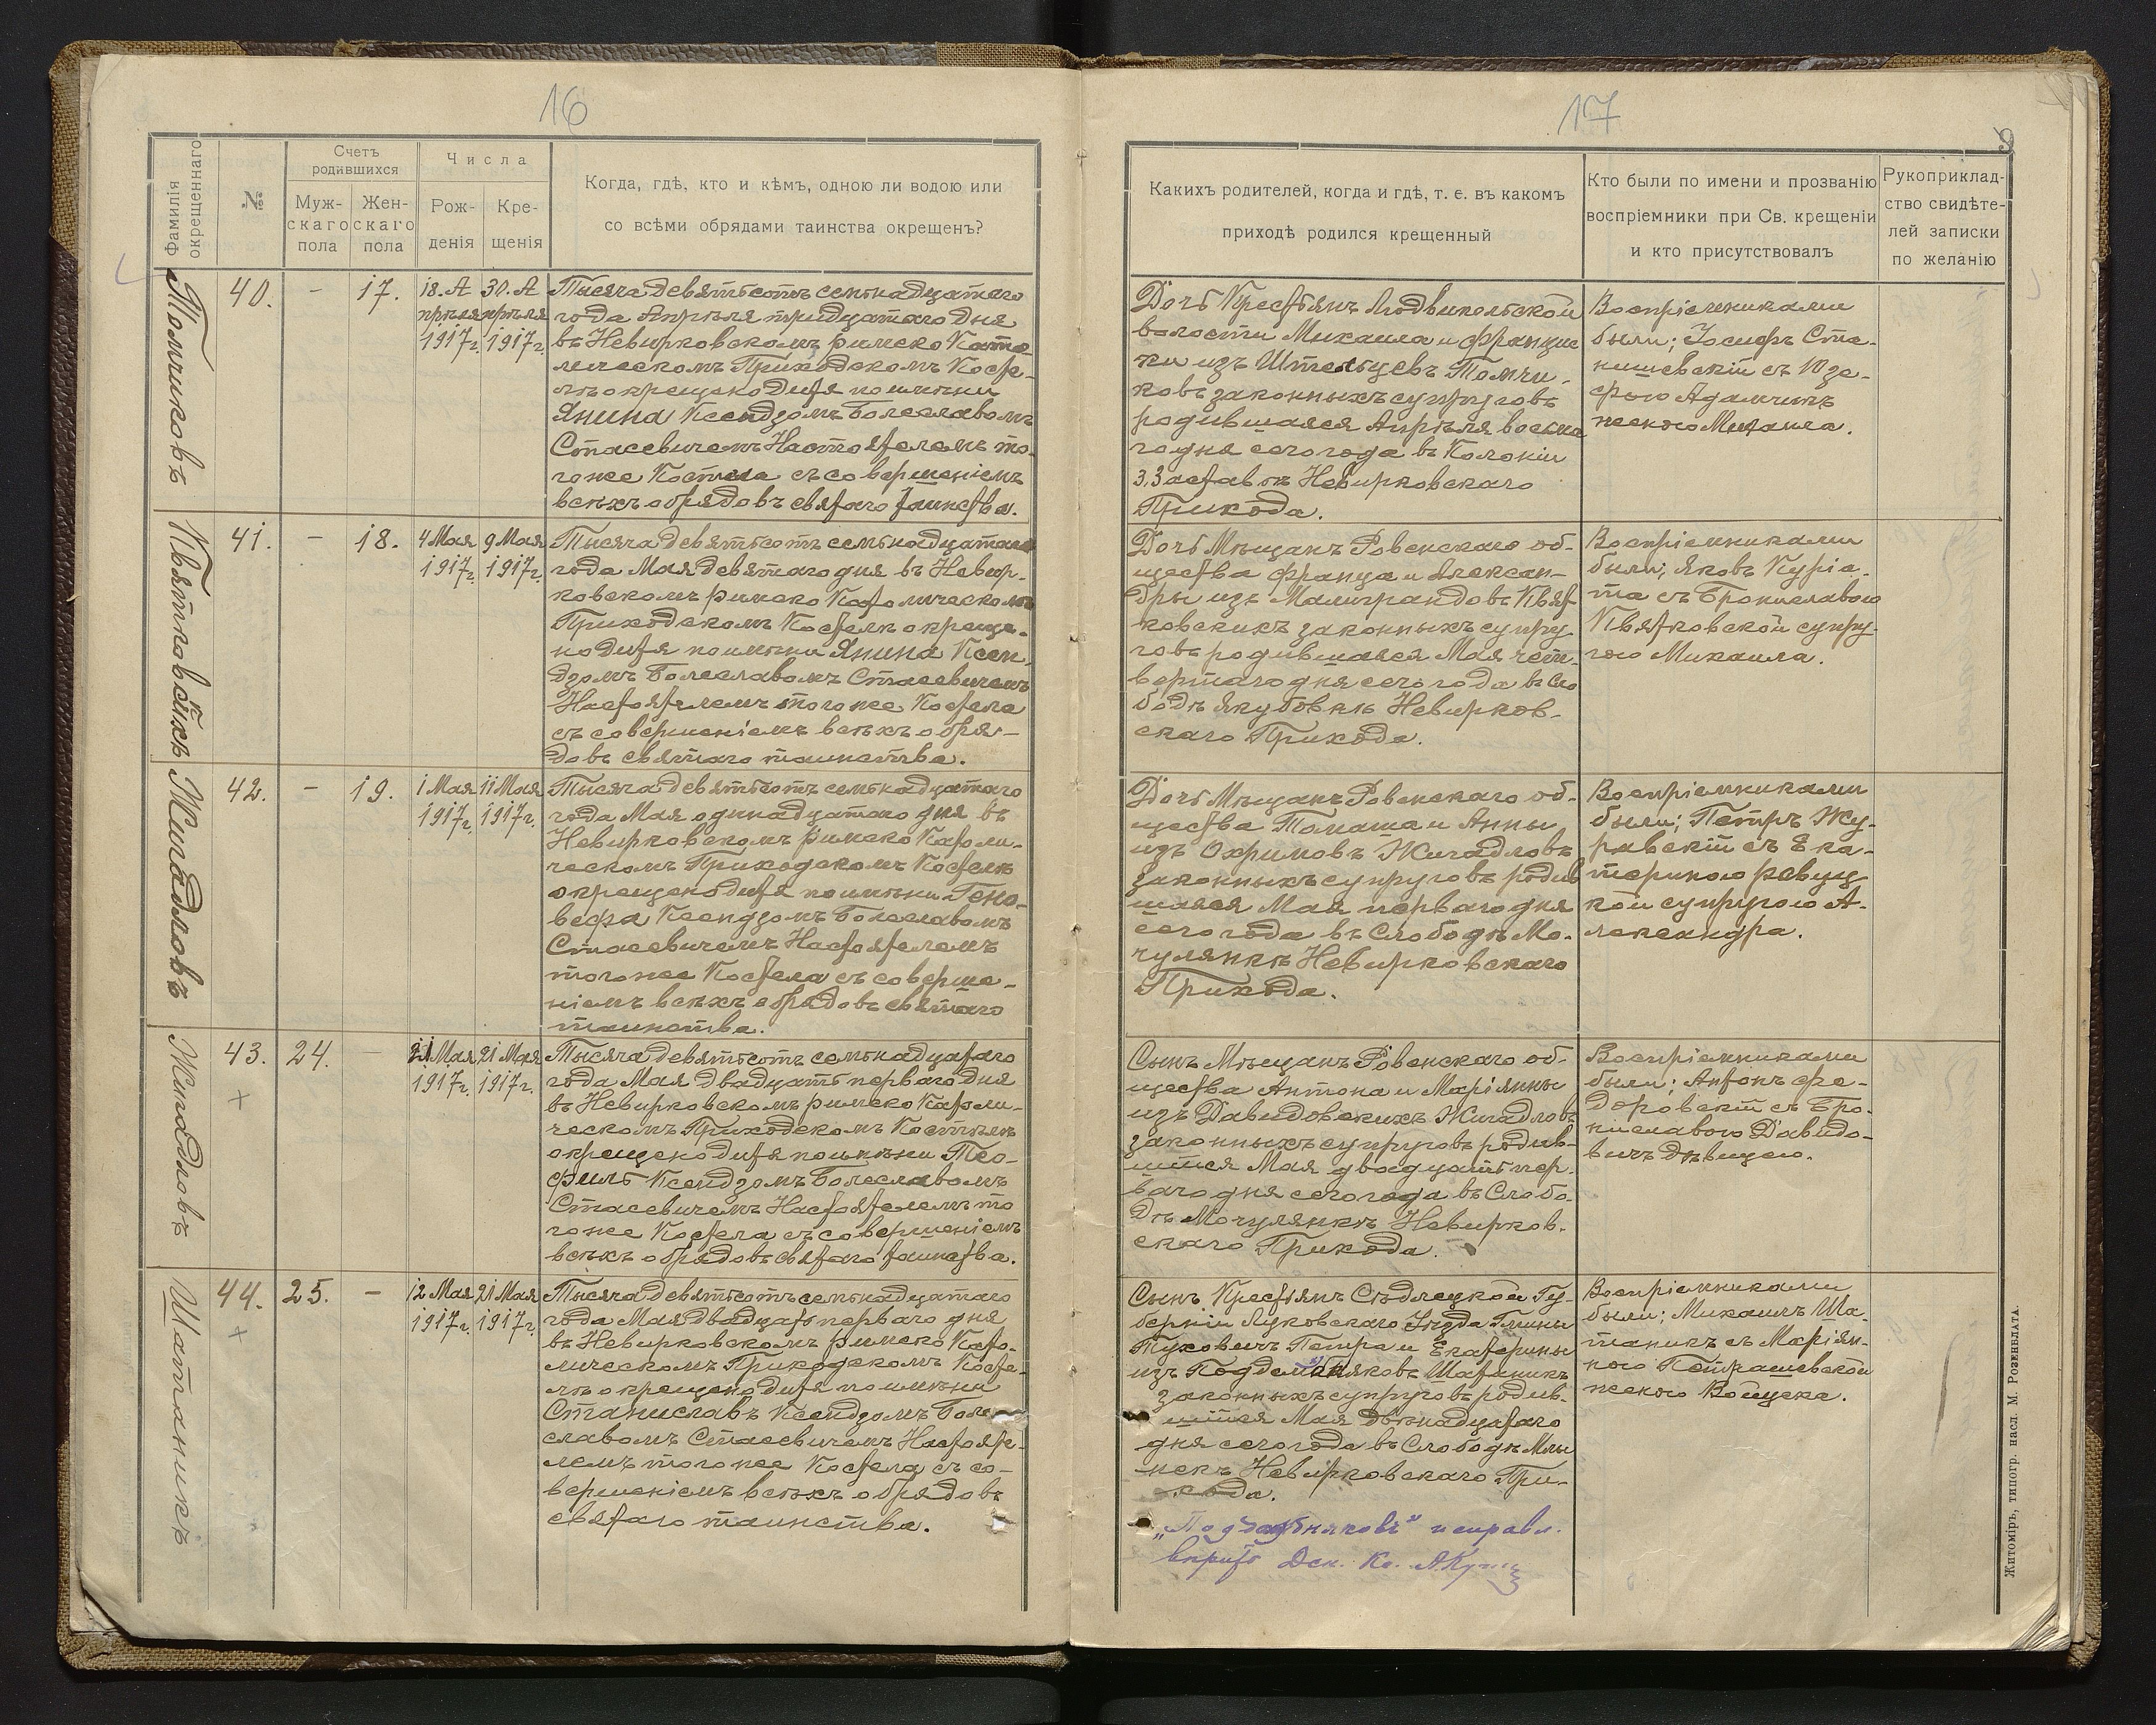 16
Фамилія окрещеннаго
№
Счетъ родившихся
Муж-
скаго
пола
Жен-
скаго
пола
Числа
Рож-
денія
Кре-
щенія
Когда, гдѣ, кто и кѣмъ, одною ли водою или
со всѣми обрядами таинства окрещенъ?
Томчиковъ
40.
-
17.
18. А
прѣля
1917 г.
30. А
прѣля
1917 г.
Тысяча девятьсотъ семьнадцатаго
года Апрѣля тридцатаго дня
въ Невирковскомъ римско Като-
лическомъ Приходскомъ Косте-
лѣ окрещено дитя по имени
Янина Ксендзомъ Болеславомъ
Стасевичемъ Настоятелемъ то-
гоже Костела съ совершеніемъ
всѣхъ обрядовъ святаго таинства.
Квятковскихъ
41.
-
18.
4 Мая
1917 г.
9 Мая
1917 г.
Тысяча девятьсотъ семьнадцатаго
года Мая девятаго дня въ Невир-
ковскомъ римско Католическомъ
Приходскомъ Костелѣ окреще-
но дитя по имени Янина Ксен-
дзомъ Болеславомъ Стасевичемъ
Настоятелемъ тогоже Костела
съ совершеніемъ всѣхъ обря-
довъ святаго таинства.
Жигадловъ
42.
-
19.
1 Мая
1917 г.
11 Мая
1917 г.
Тысяча девятьсотъ семьнадцатаго
года Мая одинадцатаго дня въ
Невирковскомъ римско Католи-
ческомъ Приходскомъ Костелѣ
окрещено дитя по имени Гено-
вефа Ксендзомъ Болеславомъ
Стасевичемъ Настоятелемъ
тогоже Костела съ соверше-
ніемъ всѣхъ обрядовъ святаго
таинства.
Жигадловъ
43.
+
24.
-
21 Мая
1917 г.
21 Мая
1917 г.
Тысяча девятьсотъ семьнадцатаго
года Мая двадцать перваго дня
въ Невирковскомъ римско Католи-
ческомъ Приходскомъ Костелѣ
окрещено дитя по имени Тео-
филь Ксендзомъ Болеславомъ
Стасевичемъ Настоятелемъ то
гоже Костела съ совершеніемъ
всѣхъ обрядовъ святаго таинства.
Шатаникъ
44.
+
25.
-
12 Мая
1917 г.
21 Мая
1917 г.
Тысяча девятьсотъ семьнадцатаго
года Мая двадцать перваго дня
въ Невирковскомъ римско Като-
лическомъ Приходскомъ Косте-
лѣ окрещено дитя по имени
Станиславъ Ксендзомъ Боле-
славомъ Стасевичемъ Настояте-
лемъ тогоже Костела съ со-
вершеніемъ всѣхъ обрядовъ
святаго таинства.
17
9
Какихъ родителей, когда и гдѣ, т. е. въ какомъ
приходѣ родился крещенный
Кто были по имени и прозванію
воспріемники при Св. крещеніи
и кто присутствовалъ
Рукоприклад-
ство свидѣте-
лей записки
по желанію
Дочь Крестьянъ Людвипольской
волости Михаила и Францис
ки изъ Штельцевъ Томчи-
ковъ законныхъ супруговъ
родившаяся Апрѣля восьма
го дня сего года въ Колоніи
З. Заставѣ Невирковскаго
Прихода.
Воспріемниками
были; Іосифъ Ста-
нишевскій съ Юзе-
фою Адамчикъ
женою Михаила.
Дочь Мѣщанъ Ровенскаго об-
щества Франца и Алексан-
дры изъ Малиграндовъ Квят
ковскихъ законныхъ супру
говъ родившаяся Мая чет-
вертаго дня сего года въ Сло
бодѣ Якубовкѣ Невирков-
скаго Прихода.
Воспріемниками
были; Яковъ Куріа-
та съ Брониславою
Квятковской супру-
гою Михаила.
Дочь Мѣщанъ Ровенскаго об-
щества Томаша и Анны
изъ Охримовъ Жигадловъ
законныхъ супруговъ родив
шаяся Мая перваго дня
сего года въ Слободѣ Мо-
чулянкѣ Невирковскаго
Прихода.
Воспріемниками
были; Петръ Жу-
равскій съ Ека-
териною Ревуц-
кой супругою А-
лександра.
Сынъ Мѣщанъ Ровенскаго об-
щества Антона и Маріянны
изъ Давидовскихъ Жигадловъ
законныхъ супруговъ родив-
шійся Мая двадцать пер-
ваго дня сего года въ Слобо-
дѣ Мочулянкѣ Невирков-
скаго Прихода.
Воспріемниками
были; Антонъ Фе-
доровскій съ Бро-
ниславою Давидо-
вичъ дѣвицею.
Сынъ Крестьянъ Сѣдлецкой Гу-
берніи Луковскаго Уѣзда Гмины
Туховичъ Петра и Екатерины
изъ Шатаникъ
законныхъ супруговъ родив-
шійся Мая двѣнадцатаго
дня сего года въ Слободѣ Млы
нокъ Невирковскаго При-
хода.
исправл.
вѣрить Дек. Кс.
Воспріемниками
были; Михаилъ Ша-
таникъ съ Маріян-
ною Петрашевской
женою Войцеха.
Житоміръ, типогр. насл. М. Розенблата.